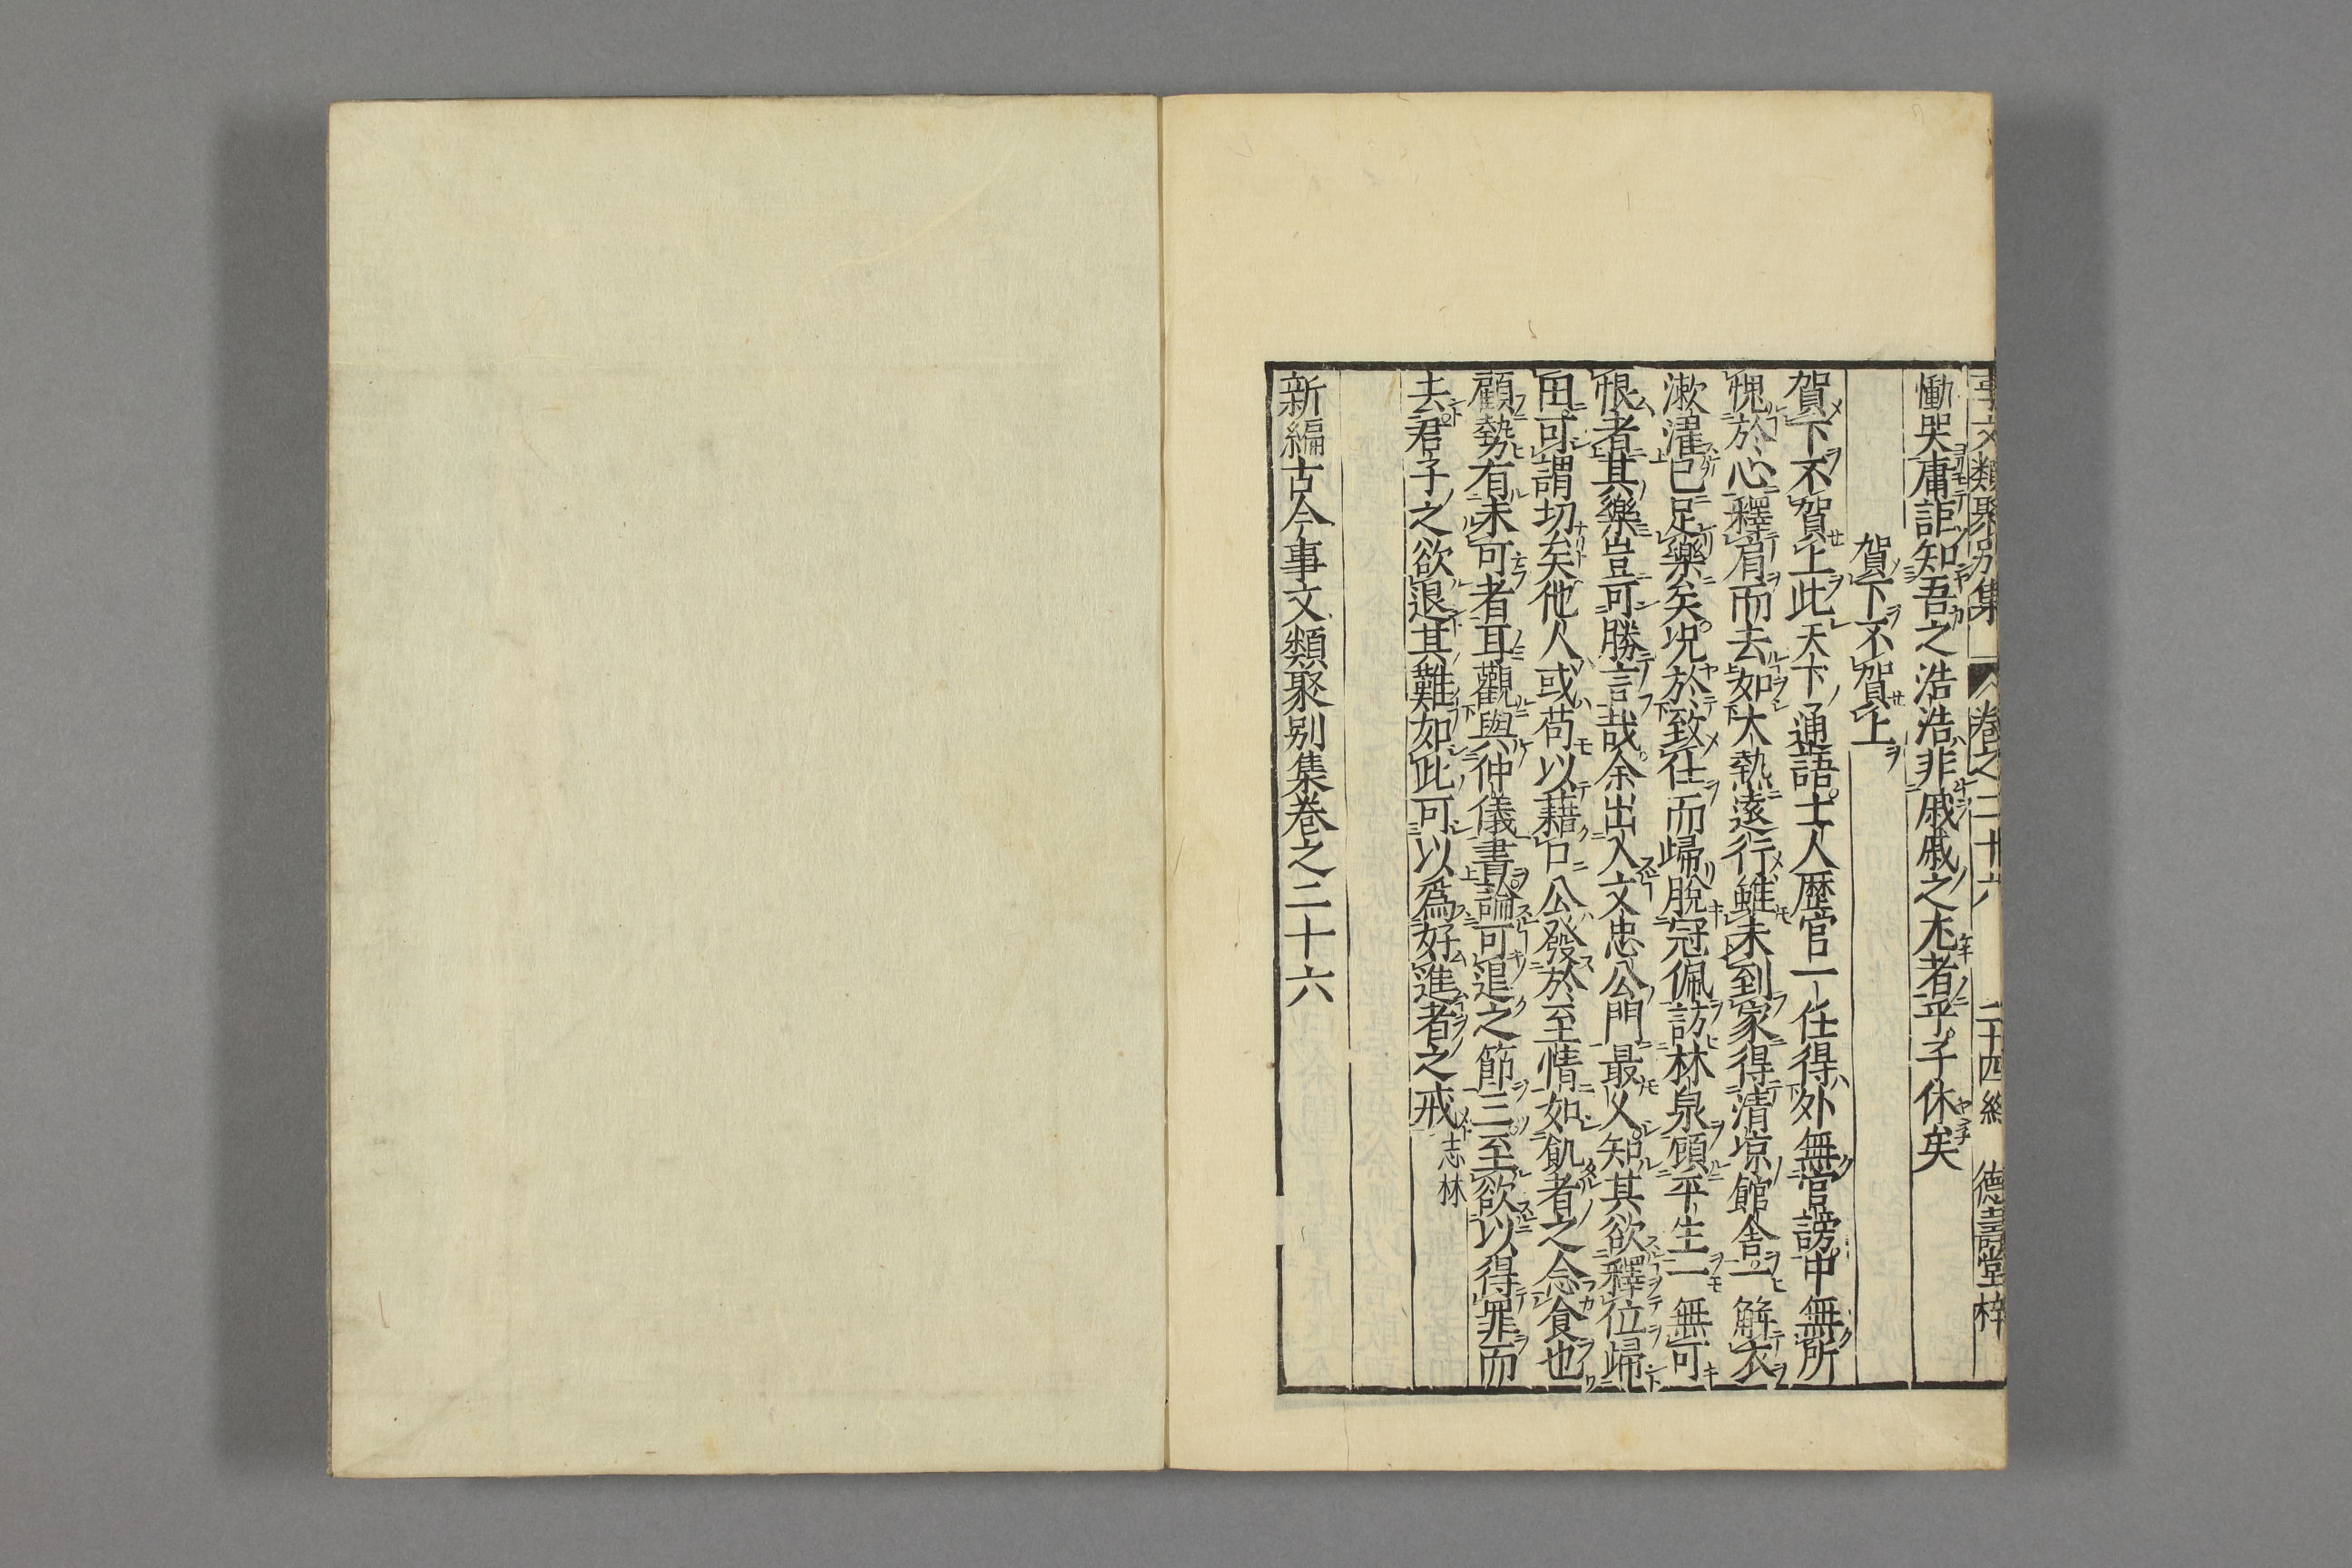 事文類聚別集 卷之二十六 二十四終 德壽堂梓
慟哭庸詎知吾之浩浩非戚戚之尤者乎子休矣
賀下不賀上
賀下不賀上此天下通語士人歷官一任得外無官謗中無所
愧於心釋肩而去如大熱遠行雖未到家得清涼館舍一解衣
漱濯已足樂矣况於致仕而歸脫冠佩訪林泉顧平生一無可
恨者其樂豈可勝言哉余出入文忠公門最乆知其欲釋位歸
田可謂切矣他人或苟以藉口公發於至情如飢者之念食也
顧勢有未可者耳觀與仲儀書論可退之節三至欲以得罪而
去君子之欲退其難如此可以爲好進者之戒 志林
新編古今事文類聚別集卷之二十六